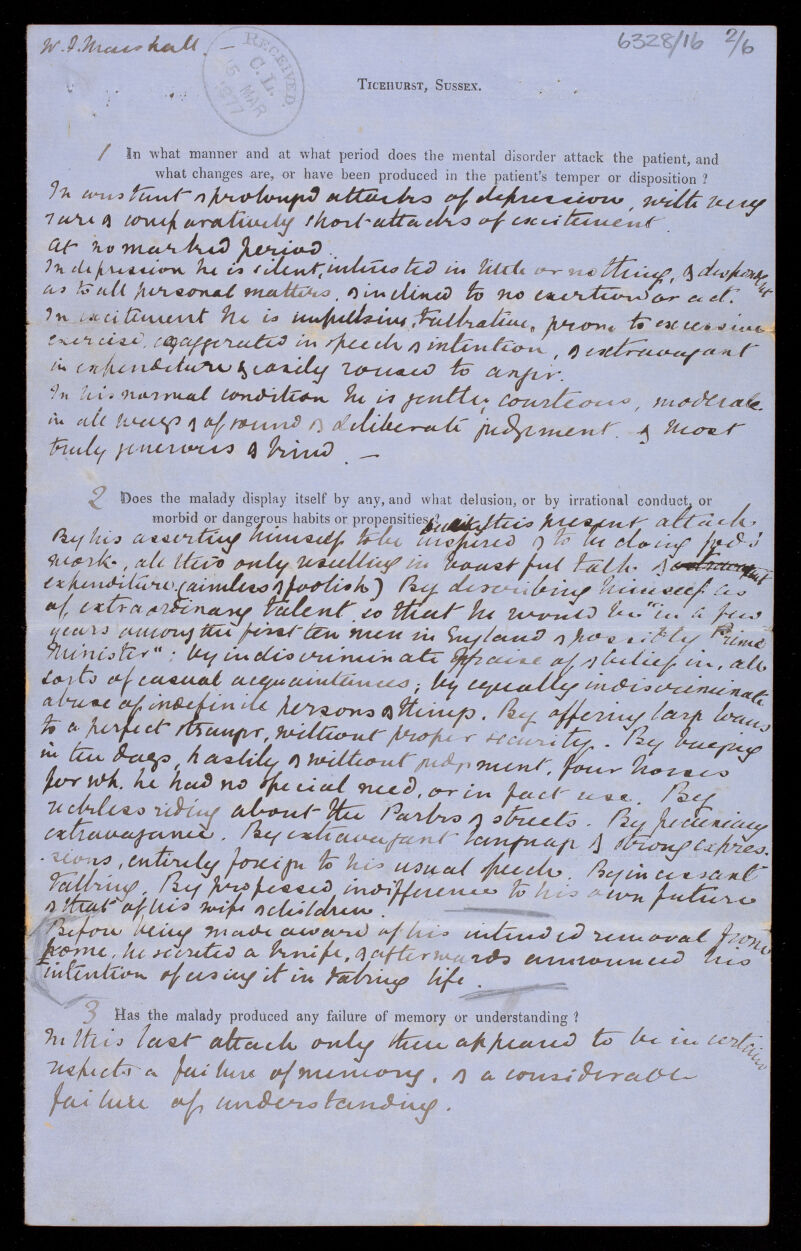 W. J. Marshall.
6328/16 2/6
RECEIVED
C. L.
15 MAR
1977
Ticehurst, Sussex.
1 In what manner and at what period does the mental disorder attack the patient, and
what changes are, or have been produced in the patient's temper or disposition ?
In constant & prolonged attacks of depression, with very
rare & comparatively short attacks of excitement.
At no marked period.
In depression he is silent, interested in little or nothing, & despondent
as to all personal matters, & inclined to no exertion or act.
In excitement he is impulsive, talkative, prone to excessive
exercise, exaggerated in speech & intention, & extravagant
in expenditure & easily roused to anger.
In his normal condition he is gentle, courteous, moderate
in all ways & of sound & deliberate judgment & most
truly generous & kind. —
2 Does the malady display itself by any, and what delusion, or by irrational conduct, or
morbid or dangerous habits or propensities ? during this present attack.
By his asserting himself to be inspired & to be doing God's
work, all this only resulting in boastful talk &
expenditure (aimless & foolish) By describing himself as
of extraordinary talent so that he would be "in a few
years among the first ten men in England & possibly Prime
Minister"; by indiscriminate praise of & belief in, all
sorts of casual acquaintances; by equally indiscriminate
abuse of indefinite persons & things. By offering large loans
to a perfect stranger, without proper security. By buying
in ten days, hastily & without judgment, four horses
for wh. he had no special need, or in fact use. By
reckless riding about the Parks & streets. By pecuniary
extravagance. By extravagant language & strong expres-
-sions, entirely foreign to his usual speech. By incessant
talking. By professed indifference to his own future
& that of his wife & children.
Before being made aware of his intended removal from
home, he secreted a knife, & afterwards announced his
intention of using it in taking life.
3 Has the malady produced any failure of memory or understanding ?
In this last attack only there appeared to be in certain
respects a failure of memory, & a considerable
failure of understanding.